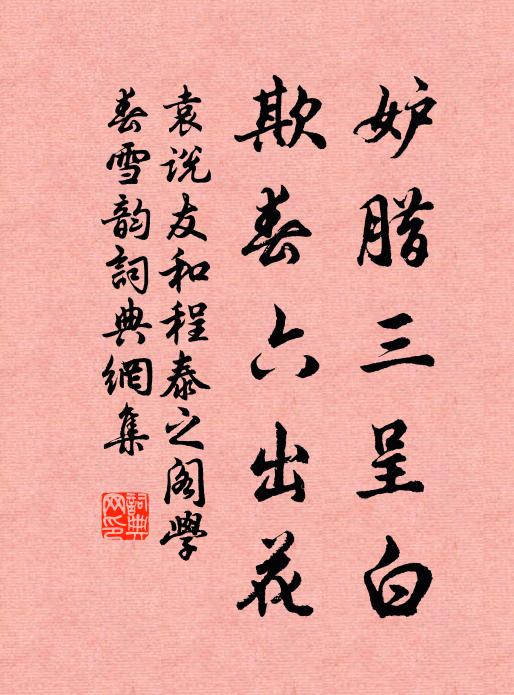 妒腊三呈白
欺春六出花
袁说友和程泰之阁学
春雪韵詞典網集
詞典网印